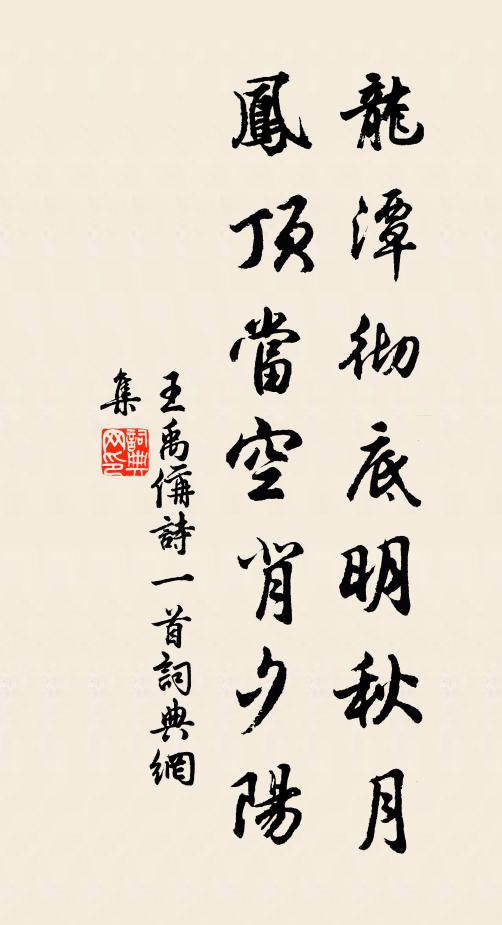 龍潭彻底明秋月
鳳頂當空背夕陽
王禹偁詩一首詞典網
集
詞典
网印